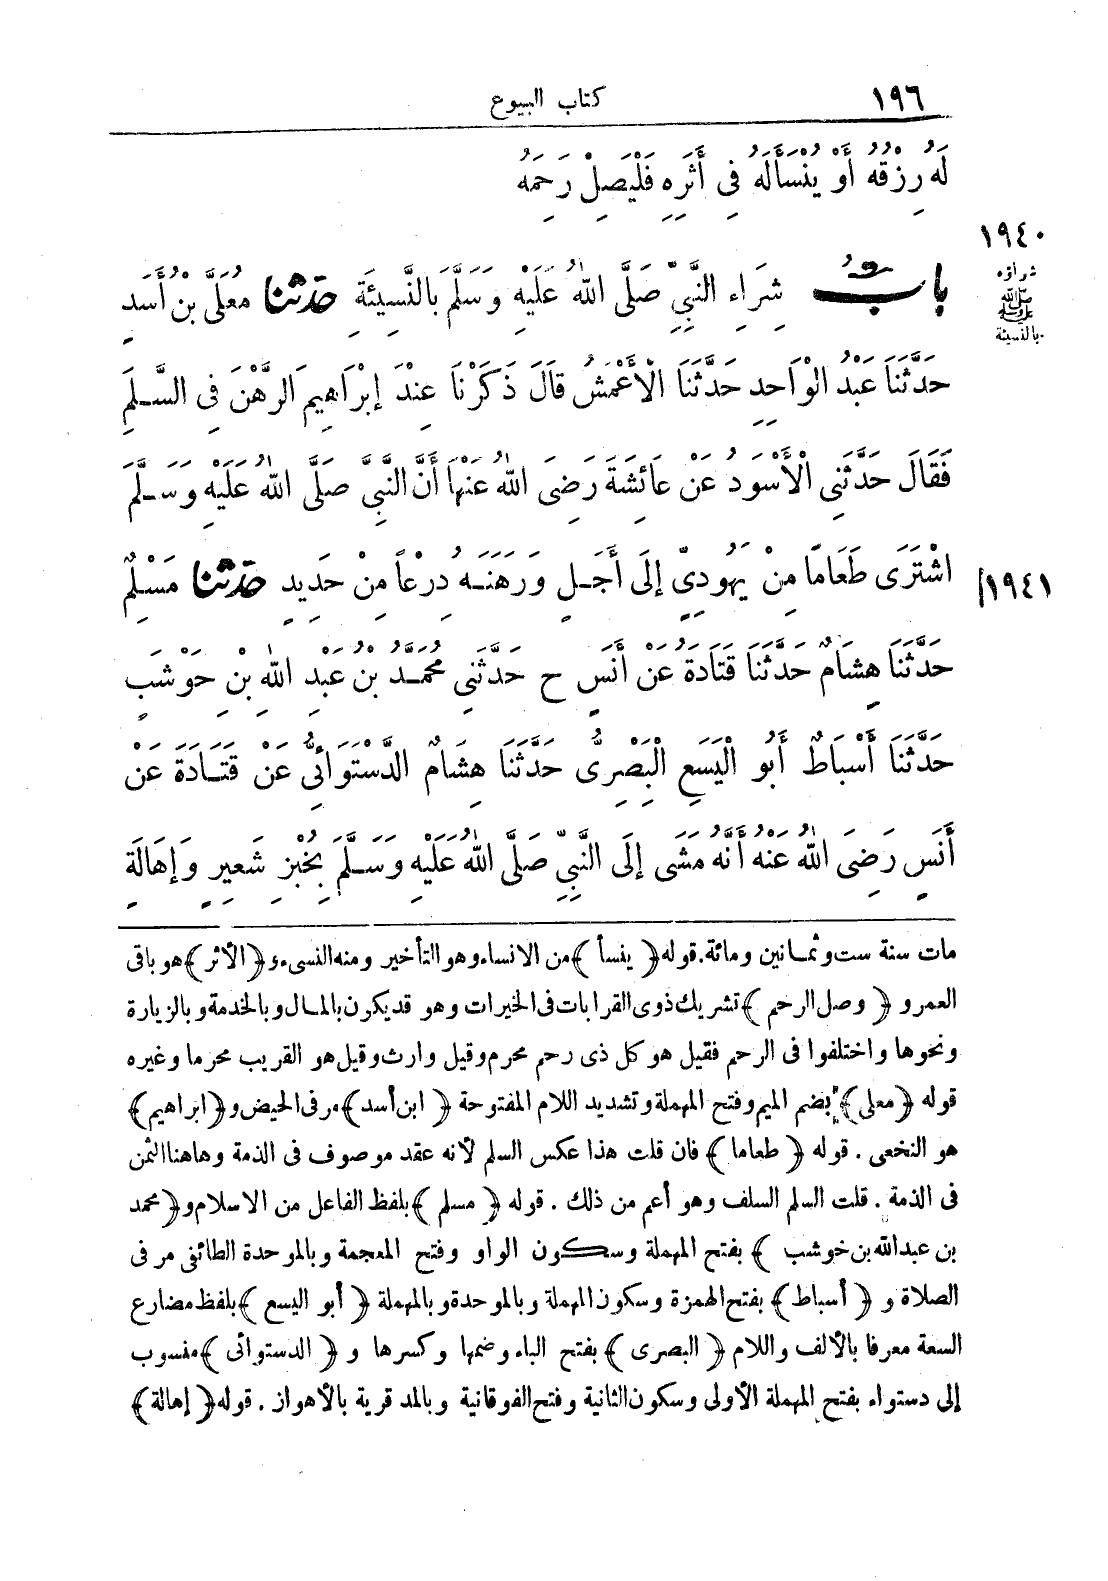 ١٩٦
كتاب البيوع
لَهُ رِزْقُهُ أَوْ يُنْسَأَلَهُ فِى أَثَرِهِ فَلْيَصِلْ رَحِمَهُ
١٩٤٠
شراؤه
صلى الله عليه وسلم
بالنسيئة
بابُ شِرَاءِ النَّبِيِّ صَلَّى اللهُ عَلَيْهِ وَسَلَّمَ بِالنَّسِيئَةِ حدثنا مُعَلَّى بْنُ أَسَدٍ
حَدَّثَنَا عَبْدُ الْوَاحِدِ حَدَّثَنَا الْأَعْمَشُ قَالَ ذَكَرْنَا عِنْدَ إِبْرَاهِيمَ الرَّهْنَ فِى السَّلَمِ
فَقَالَ حَدَّثَنِى الْأَسْوَدُ عَنْ عَائِشَةَ رَضِىَ اللهُ عَنْهَا أَنَّ النَّبِىَّ صَلَّى اللهُ عَلَيْهِ وَسَلَّمَ
اشْتَرَى طَعَامًا مِنْ يَهُودِىٍّ إِلَى أَجَلٍ وَرَهَنَهُ دِرْعاً مِنْ حَدِيدٍ حدثنا مُسْلِمٌ
١٩٤١
حَدَّثَنَا هِشَامٌ حَدَّثَنَا قَتَادَةُ عَنْ أَنَسٍ ح حَدَّثَنِى مُحَمَّدُ بْنُ عَبْدِ اللهِ بْنِ حَوْشَبٍ
حَدَّثَنَا أَسْبَاطٌ أَبُو الْيَسَعِ الْبَصْرِىُّ حَدَّثَنَا هِشَامٌ الدَّسْتَوَائِىُّ عَنْ قَتَادَةَ عَنْ
أَنَسٍ رَضِىَ اللهُ عَنْهُ أَنَّهُ مَشَى إِلَى النَّبِىِّ صَلَّى اللهُ عَلَيْهِ وَسَلَّمَ بِخُبْزِ شَعِيرٍ وَإِهَالَةٍ
مات سنة ست وثمانين ومائة. قوله ﴿ينسأ﴾ من الانساء وهو التأخير ومنه النسىء و﴿الأثر﴾ هو باقى
العمر و ﴿وصل الرحم﴾ تشريك ذوى القرابات فى الخيرات وهو قد يكون بالمال وبالخدمة وبالزيارة
ونحوها واختلفوا فى الرحم فقيل هو كل ذى رحم محرم وقيل وارث وقيل هو القريب محرما وغيره
قوله ﴿معلى﴾ بضم الميم وفتح المهملة وتشديد اللام المفتوحة ﴿ابن أسد﴾ مر فى الحيض و﴿ابراهيم﴾
هو النخعى . قوله ﴿طعاما﴾ فان قلت هذا عكس السلم لأنه عقد موصوف فى الذمة وهاهنا الثمن
فى الذمة . قلت السلم السلف وهو أعم من ذلك . قوله ﴿مسلم﴾ بلفظ الفاعل من الاسلام و﴿محمد
بن عبدالله بن خوشب﴾ بفتح المهملة وسكون الواو وفتح المعجمة وبالموحدة الطائفى مر فى
الصلاة و ﴿أسباط﴾ بفتح الهمزة وسكون المهملة وبالموحدة وبالمهملة ﴿أبو اليسع﴾ بلفظ مضارع
السعة معرفا بالألف واللام ﴿البصرى﴾ بفتح الباء وضمها وكسرها و ﴿الدستوائى﴾ منسوب
إلى دستواء بفتح المهملة الأولى وسكون الثانية وفتح الفوقانية وبالمد قرية بالأهواز . قوله ﴿إهالة﴾